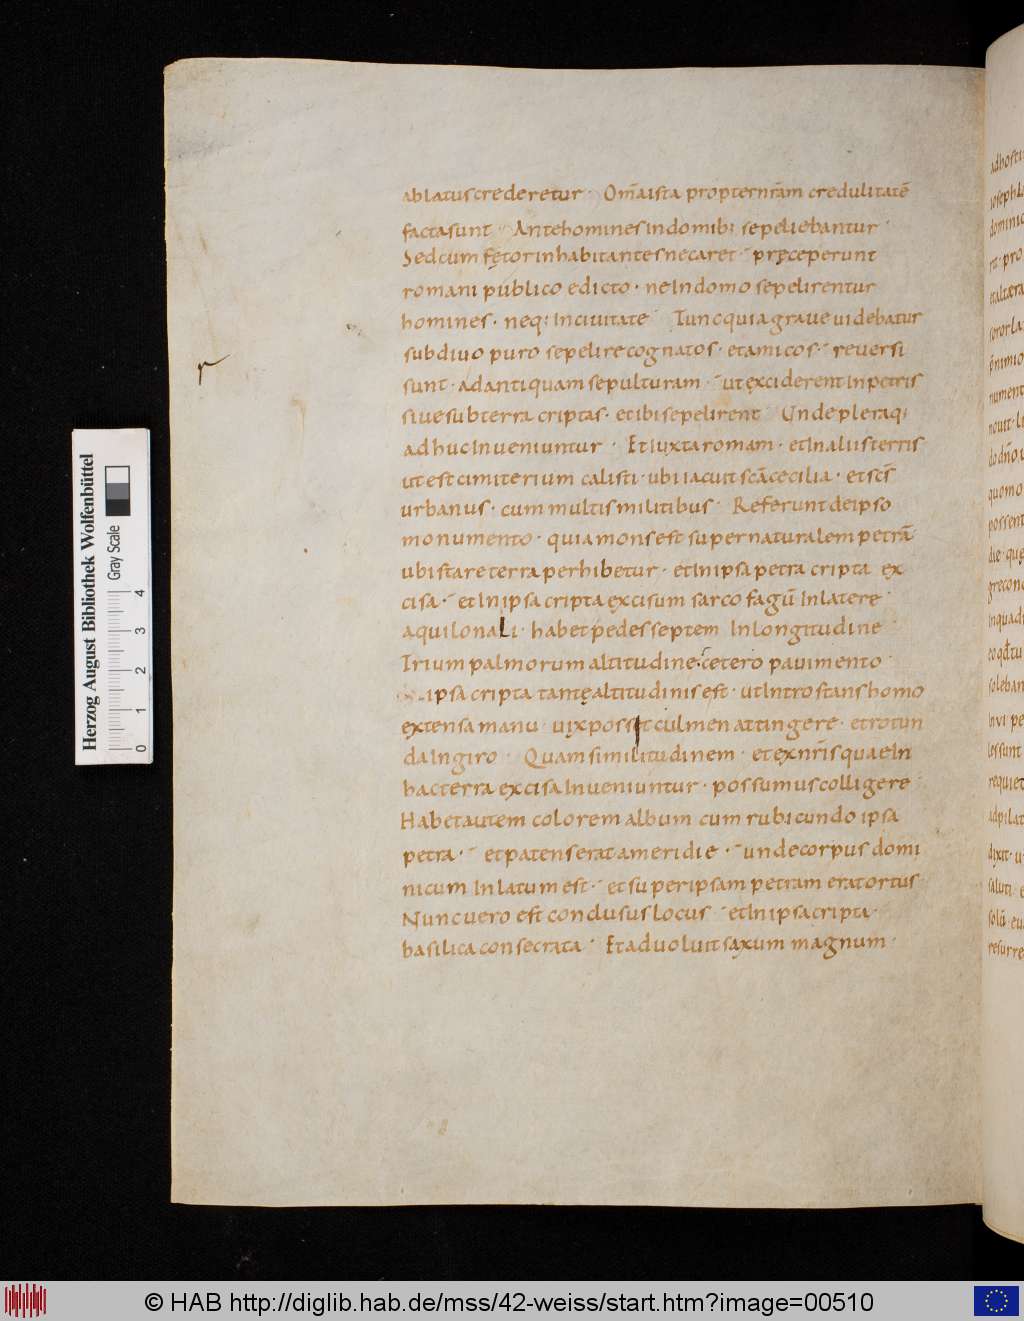 ablatus crederetur · Om̅a ista propter nr̅am credulitate̅
facta sunt · Ante homines in domib; sepeliebantur ·
Sed cum fętor inhabitantes necaret · pręceperunt
romani publico edicto · ne In domo sepelirentur
homines · neq; In ciuitate · Tunc quia graue uidebatur
sub diuo puro sepelire cognatos · et amicos · reuersi
sunt · ad antiquam sepulturam · ut exciderent In petris
siue sub terra criptas · et ibi sepelirent Unde pleraq;
adhuc Inueniuntur · Et Iuxta romam · et In aliis terris
ut est cimiterium calisti · ubi iacuit sc̅a cecilia · et sc̅s
urbanus · cum multis militibus · Referunt de ipso
monumento · quia mons est supernaturalem petra̅
ubi stare terra perhibetur · et In ipsa petra cripta ex
cisa · et In ipsa cripta excisum sarcofagu̅ In latere ·
aquilonali · habet pedes septem In longitudine ·
Trium palmorum altitudine · cetero pauimento ·
ipsa cripta tantę altitudinis est · ut Intro stans homo
extensa manu · uix posset culmen attingere · et rotun
da In giro · Quam similitudinem · et ex nr̅is quae In
hac terra excisa Inueniuntur · possumus colligere ·
Habet autem colorem album cum rubicundo ipsa
petra · et patens erat a meridie · unde corpus domi
nicum Inlatum est · et super ipsam petram erat ortus
Nunc uero est conclusus locus · et In ipsa cripta ·
basilica consecrata · Et aduoluit saxum magnum ·
r
Herzog August Bibliothek Wolfenbüttel
Gray Scale
0 1 2 3 4
© HAB http://diglib.hab.de/mss/42-weiss/start.htm?image=00510